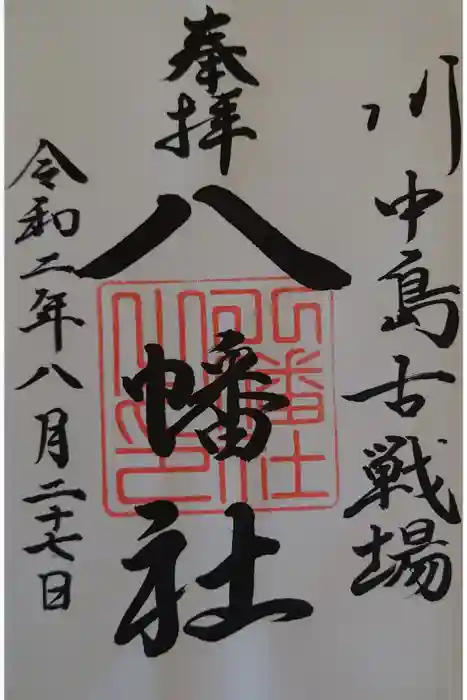 川中島古戦場
奉拝
八幡社
令和二年八月二十七日